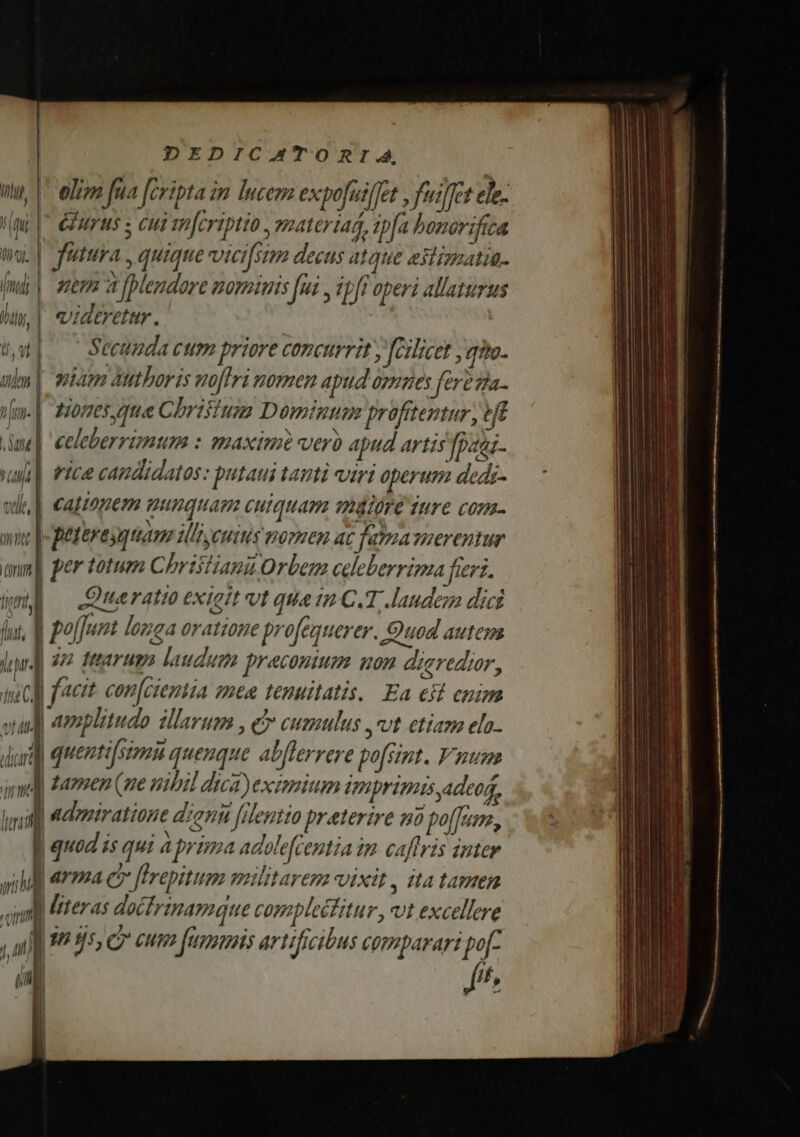 DEDICATORIA.
olim ſua ſcripta in lucem expoſuiſſet, fuiſſet ele-
cturus; cui inſcriptio, materiaq́, ipſa honorifica
futura, quique viciſsim decus atque æstimatio-
nem à ſplendore nominis ſui, ipſi operi allaturus
videretur.
Secunda cum priore concurrit, ſcilicet, quo-
niam authoris noſtri nomen apud omnes ferè na-
tiones, que Christum Dominum profitentur, eſt
celeberrimum: maximè verò apud artis ſpagi-
ricæ candidatos: putaui tanti viri operum dedi-
cationem nunquam cuiquam maiore iure com-
petere, quàm illi, cuius nomen ac fama merentur
per totum Christiani Orbem celeberrima fieri.
Quæ ratio exigit vt quæ in C.T. laudem dici
poſſunt longa oratione proſequerer. Quod autem
in tuarum laudum præconium non digredior,
facit conſcientia meæ tenuitatis. Ea est enim
amplitudo illarum, & cumulus, vt etiam elo-
quentiſsimū quenque abſterrere poſsint. Vnum
tamen (ne nihil dicā) eximium imprimis, adeoq́,
admiratione dignū ſilentio præterire nō poſſum,
quod is qui à prima adoleſcentia in caſtris inter
arma & ſtrepitum militarem vixit, ita tamen
literas doctrinamque complectitur, vt excellere
in ijs, & cum ſummis artificibus comparari poſ-
ſit,